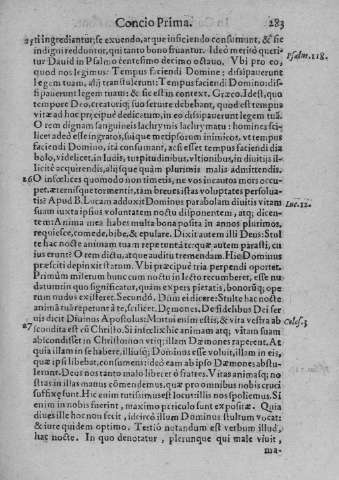 Concio Prima. 283
25 ti ingrediantur, se exuendo, atque inficiendo consumunt, & sic
indigni redduntur, qui tanto bono fruantur. Ideò meritò queri-
tur Dauid in Psalmo centesimo decimo octauo. Vbi pro eo,
Psalm. 118.
quod nos legimus: Tempus faciendi Domine: dissipauerunt
legem tuam, alij transtulerunt: Tempus faciendi Domino: dis-
sipauerunt legem tuam: & sic est in context. Græco. Id est, quo
tempore Deo, creatoriq; suo seruire debebant, quod est tempus
vitæ ad hoc præcipuè dedicatum, in eo dissipauerunt legem tuã.
O rem dignam sanguineis lachrymis lachrymatu: homines sci-
licet adeò esse ingratos, suique metipsorum inimicos, vt tempus
faciendi Domino, ità consumant, ac si esset tempus faciendi dia
bolo, videlicet, in ludis, turpitudinibus, vltionibus, in diuitijs il-
licitè acquirendis, alijsque quàm plurimis malis admittendis.
26 O infœlices quomodo non timetis, ne vos incautos mors occu-
pet, æternisque tormentis, tàm breues istas voluptates persolua-
tis? Apud B. Lucam adduxit Dominus parabolam diuitis vitam
Luc. 12.
suam iuxta ipsius voluntatem noctu disponentem, atq; dicen-
tem: Anima mea habes multa bona posita in annos plurimos,
requiesce, comede, bibe, & epulare. Dixit autem illi Deus: Stul
te hac nocte animam tuam repetunt à te: quæ autem parasti, cu
ius erunt? O rem dictu, atque auditu tremendam. Hic Dominus
præsciti depinxit statum. Vbi præcipuè tria perpendi oportet.
Primùm miserum hunc cum nocturn in lecto recumberet, esse nu-
datum in quo significatur, quàm expers pietatis, bonorũq; ope-
rum nudus existeret. Secundò. Dum ei dicere: Stulte hac nocte
animã tuã repetunt à te, scilicet. Dæmones. De fidelibus Dei ser
uis dicit Diuinus Apostolus: Mortui enim estis, & vita vestra ab
Colos. 3
27 scondita est cũ Christo. Si infœlix hic animam atq; vitam suam
abscondisset in Christo: non vtiq; illam Dæmones raperent. At
quia illam in se habere, illiusq; Dominus esse voluit, illam in eis,
quæ ipsi libebat, consumens: ideò eam ab ipso Dæmones abstu-
lerunt. Deus nos tanto malo liberet ò fratres. Vitas animasq; no
stras in illas manus cõmendemus, quæ pro omnibus nobis cruci
suffixę sunt. Hic enim tutissimus est locus: illis nos spoliemus. Si
enim in nobis fuerint, maximo periculo sunt expositæ. Quia
diues ille hoc non fecit, idcircò illum Dominus stultum vocat:
& iure quidem optimo. Tertiò notandum est verbum illud,
hac nocte. In quo denotatur, plerunque qui malè viuit,
ma-